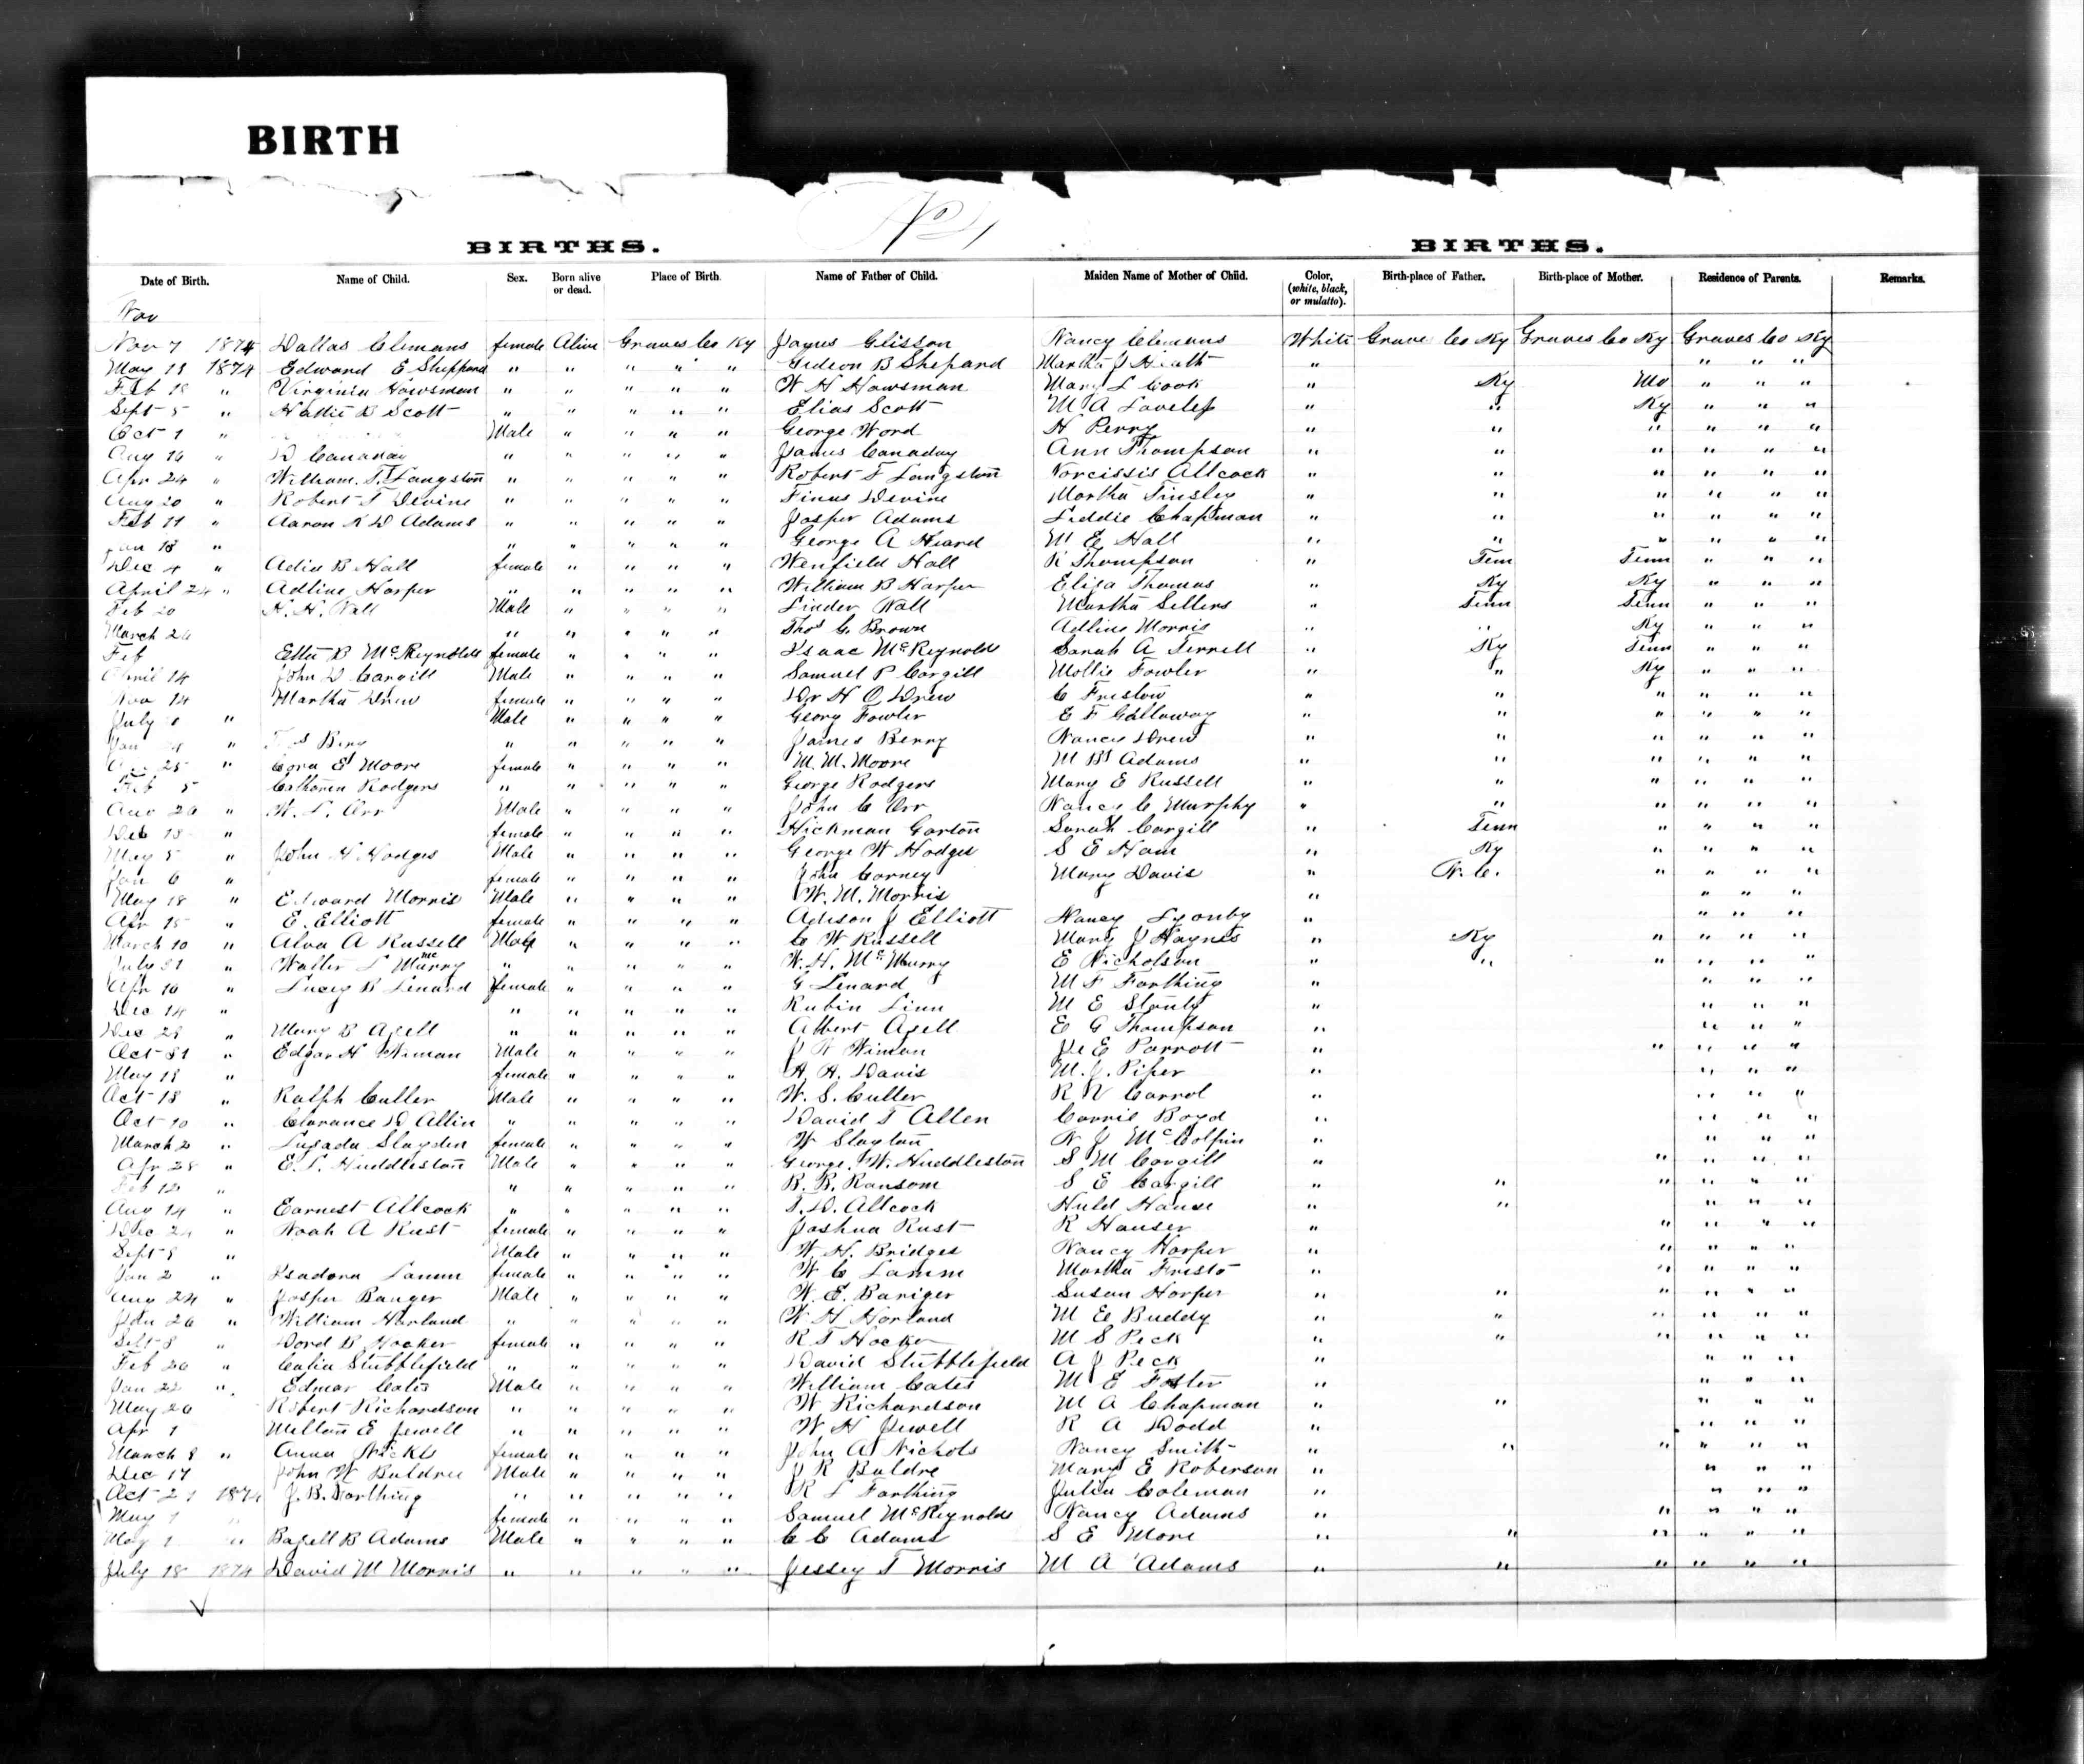 BIRTH
No 1
BIRTHS. BIRTHS.
Date of Birth. Name of Child. Sex. Born alive or dead. Place of Birth. Name of Father of Child. Maiden Name of Mother of Child. Color, (white, black, or mulatto). Birth-place of Father. Birth-place of Mother. Residence of Parents. Remarks.
Nov
Nov 7 1874 Dallas Clemans female Alive Graves Co Ky James Glisson Nancy Clemans White Grave Co Ky Graves Co Ky Graves Co Ky
May 13 1874 Edward E Sheppard " " " " " Gideon B Shepard Martha J Heath " " " "
Feb 18 " Virginia Howsman " " " " " W H Howsman Mary L Cook " Ky Mo " " "
Sept 5 " Hattie B Scott " " " " " Elias Scott M A Loveless " " Ky " " "
Oct 1 " Male " " " " George Word H Perry " " " " " "
Aug 16 " D Canaday " " " " " James Canaday Ann Thompson " " " " " "
Apr 24 " William T. Langston " " " " " Robert F Langston Narcissis Allcock " " " " " "
Aug 20 " Robert T Devine " " " " " Finus Devine Martha Tinsley " " " " " "
Feb 11 " Aaron K D Adams " " " " " Jasper Adams Liddie Chapman " " " " " "
Jan 18 " " " " " " George A Heard M E Hall " " " " " "
Dec 4 " Adia B Hall female " " " " Wenfield Hall R Thompson " Tenn Tenn " " "
April 24 " Adline Harper " " " " " William B Harper Eliza Thomas " Ky Ky " " "
Feb 20 H. H. Wall Male " " " " Linder Wall Martha Sellers " Tenn Tenn " " "
March 26 " " " " " Thos G. Brown Adline Morris " " Ky " " "
Feb Etta B McReynolds female " " " " Isaac McReynolds Sarah A Terrell " Ky Tenn " " "
April 14 John D Cargill Male " " " " Samuel P Cargill Mollie Fowler " " Ky " " "
Nov 14 Martha Drew female " " " " Dr H O Drew C Friston " " " " " "
July " Male " " " " Georg Fowler E F Galloway " " " " " "
Jan " " " " " " James Berry Nancy Drew " " " " " "
25 " Cora E Moore female " " " " M. M. Moore M B Adams " " " " " "
Feb 5 Catharin Rodgers " " " " " George Rodgers Mary E Russell " " " " " "
Aug 26 " W. L. Orr Male " " " " John C Orr Nancy C Murphy " " " " " "
Deb 18 " female " " " " Hickman Garton Sarah Cargill " Tenn " " " "
May 5 " John H Hodges Male " " " " George W Hodges S E Ham " Ky " " " "
Jan 6 " female " " " " John Carney Mary Davis " N.C. " " " "
May 18 " Edward Morris Male " " " " W. M. Morris " " " "
Apr 15 " E. Elliott female " " " " Adison J Elliott Nancy " " " "
March 10 " Alva A Russell Male " " " " C W Russell Mary J Haynes " Ky " " " "
July 31 " Walter L McMurry " " " " " W. H. McMurry E Nicholson " " " " " "
Apr 16 " Lucy B Linard female " " " " G Linard M F Farthing " " " "
Dec 14 " " " " " " Rubin Linn M E " " " "
Dec 28 " Mary B Azell " " " " " Albert Azell E G Thompson " " " "
Oct 31 " Edgar H Wiman Male " " " " J R Wiman E Parrott " " " " "
May 18 " female " " " " H. H. Davis M. J. Piper " " " "
Oct 18 " Ralph Culler Male " " " " W. S. Culler R N Carrol " " " "
Oct 10 " Clarance D Allin " " " " " David T Allen Carrie Boyd " " " "
March 2 " Luzada Slayden female " " " " W Slayton N J McColpin " " " "
Apr 28 " E. L. Huddleston Male " " " " George W. Huddleston S M Cargill " " " " "
Feb 12 " " " " " " B. B. Ransom S E Cargill " " " " " "
Aug 14 " Earnest Allcock " " " " " T. D. Allcock Huld Hause " " " " "
Dec 24 " Noah A Rust female " " " " Joshua Rust R Hauser " " " " "
Sept 8 " Male " " " " W. H. Bridges Nancy Harper " " " " "
Jan 2 " Isadora Lamm female " " " " W C Lamm Martha Fristo " " " " "
Aug 24 " Jasper Banger Male " " " " W. E. Bariger Susan Harper " " " " " "
Jan 26 " William Harland " " " " " W H Harland M E Buddy " " " " " "
Sept 8 " Dord B Hocker female " " " " R T Hocker M S Peck " " " " " "
Feb 26 " Calia Stubblefield " " " " " David Stubblefield A J Peck " " " "
Jan 22 " Edmar Catis Male " " " " William Cates M E Foster " " " "
May 26 Robert Richardson " " " " " W Richardson M A Chapman " " " " "
Apr 1 Willan E Jewell " " " " " W H Jewell R A Dodd " " " "
March 8 " Anna Nickls female " " " " John A Nichols Nancy Smith " " " " " "
Dec 17 John W Buldree Male " " " " J R Buldre Mary E Roberson " " " "
Oct 21 1874 J. B. Farthing " " " " " R L Farthing Julia Coleman " " " "
May 1 " female " " " " Samuel McReynolds Nancy Adams " " " " "
May 1 " Bazell B Adams Male " " " " C C Adams S E More " " " " " "
July 18 1874 David M Morris " " " " " Jessey T Morris M A Adams " " " " " "